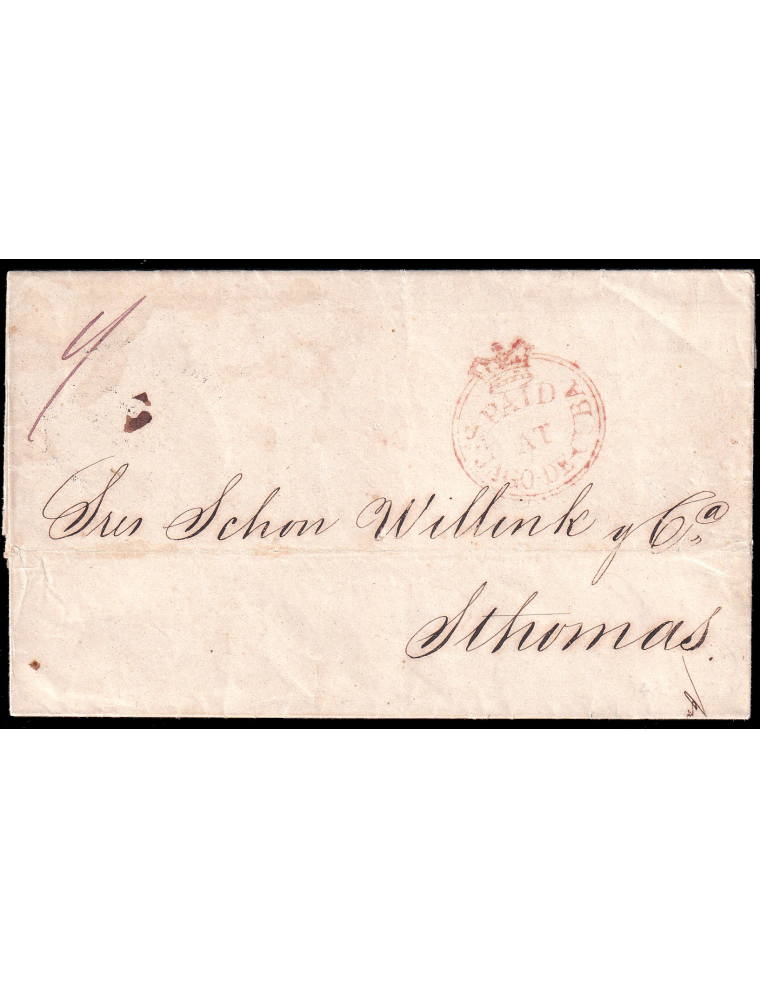 4
PAID
AT
ST JAGO-DE-CUBA
Sres Schon Willink y Cª
Sthomas.